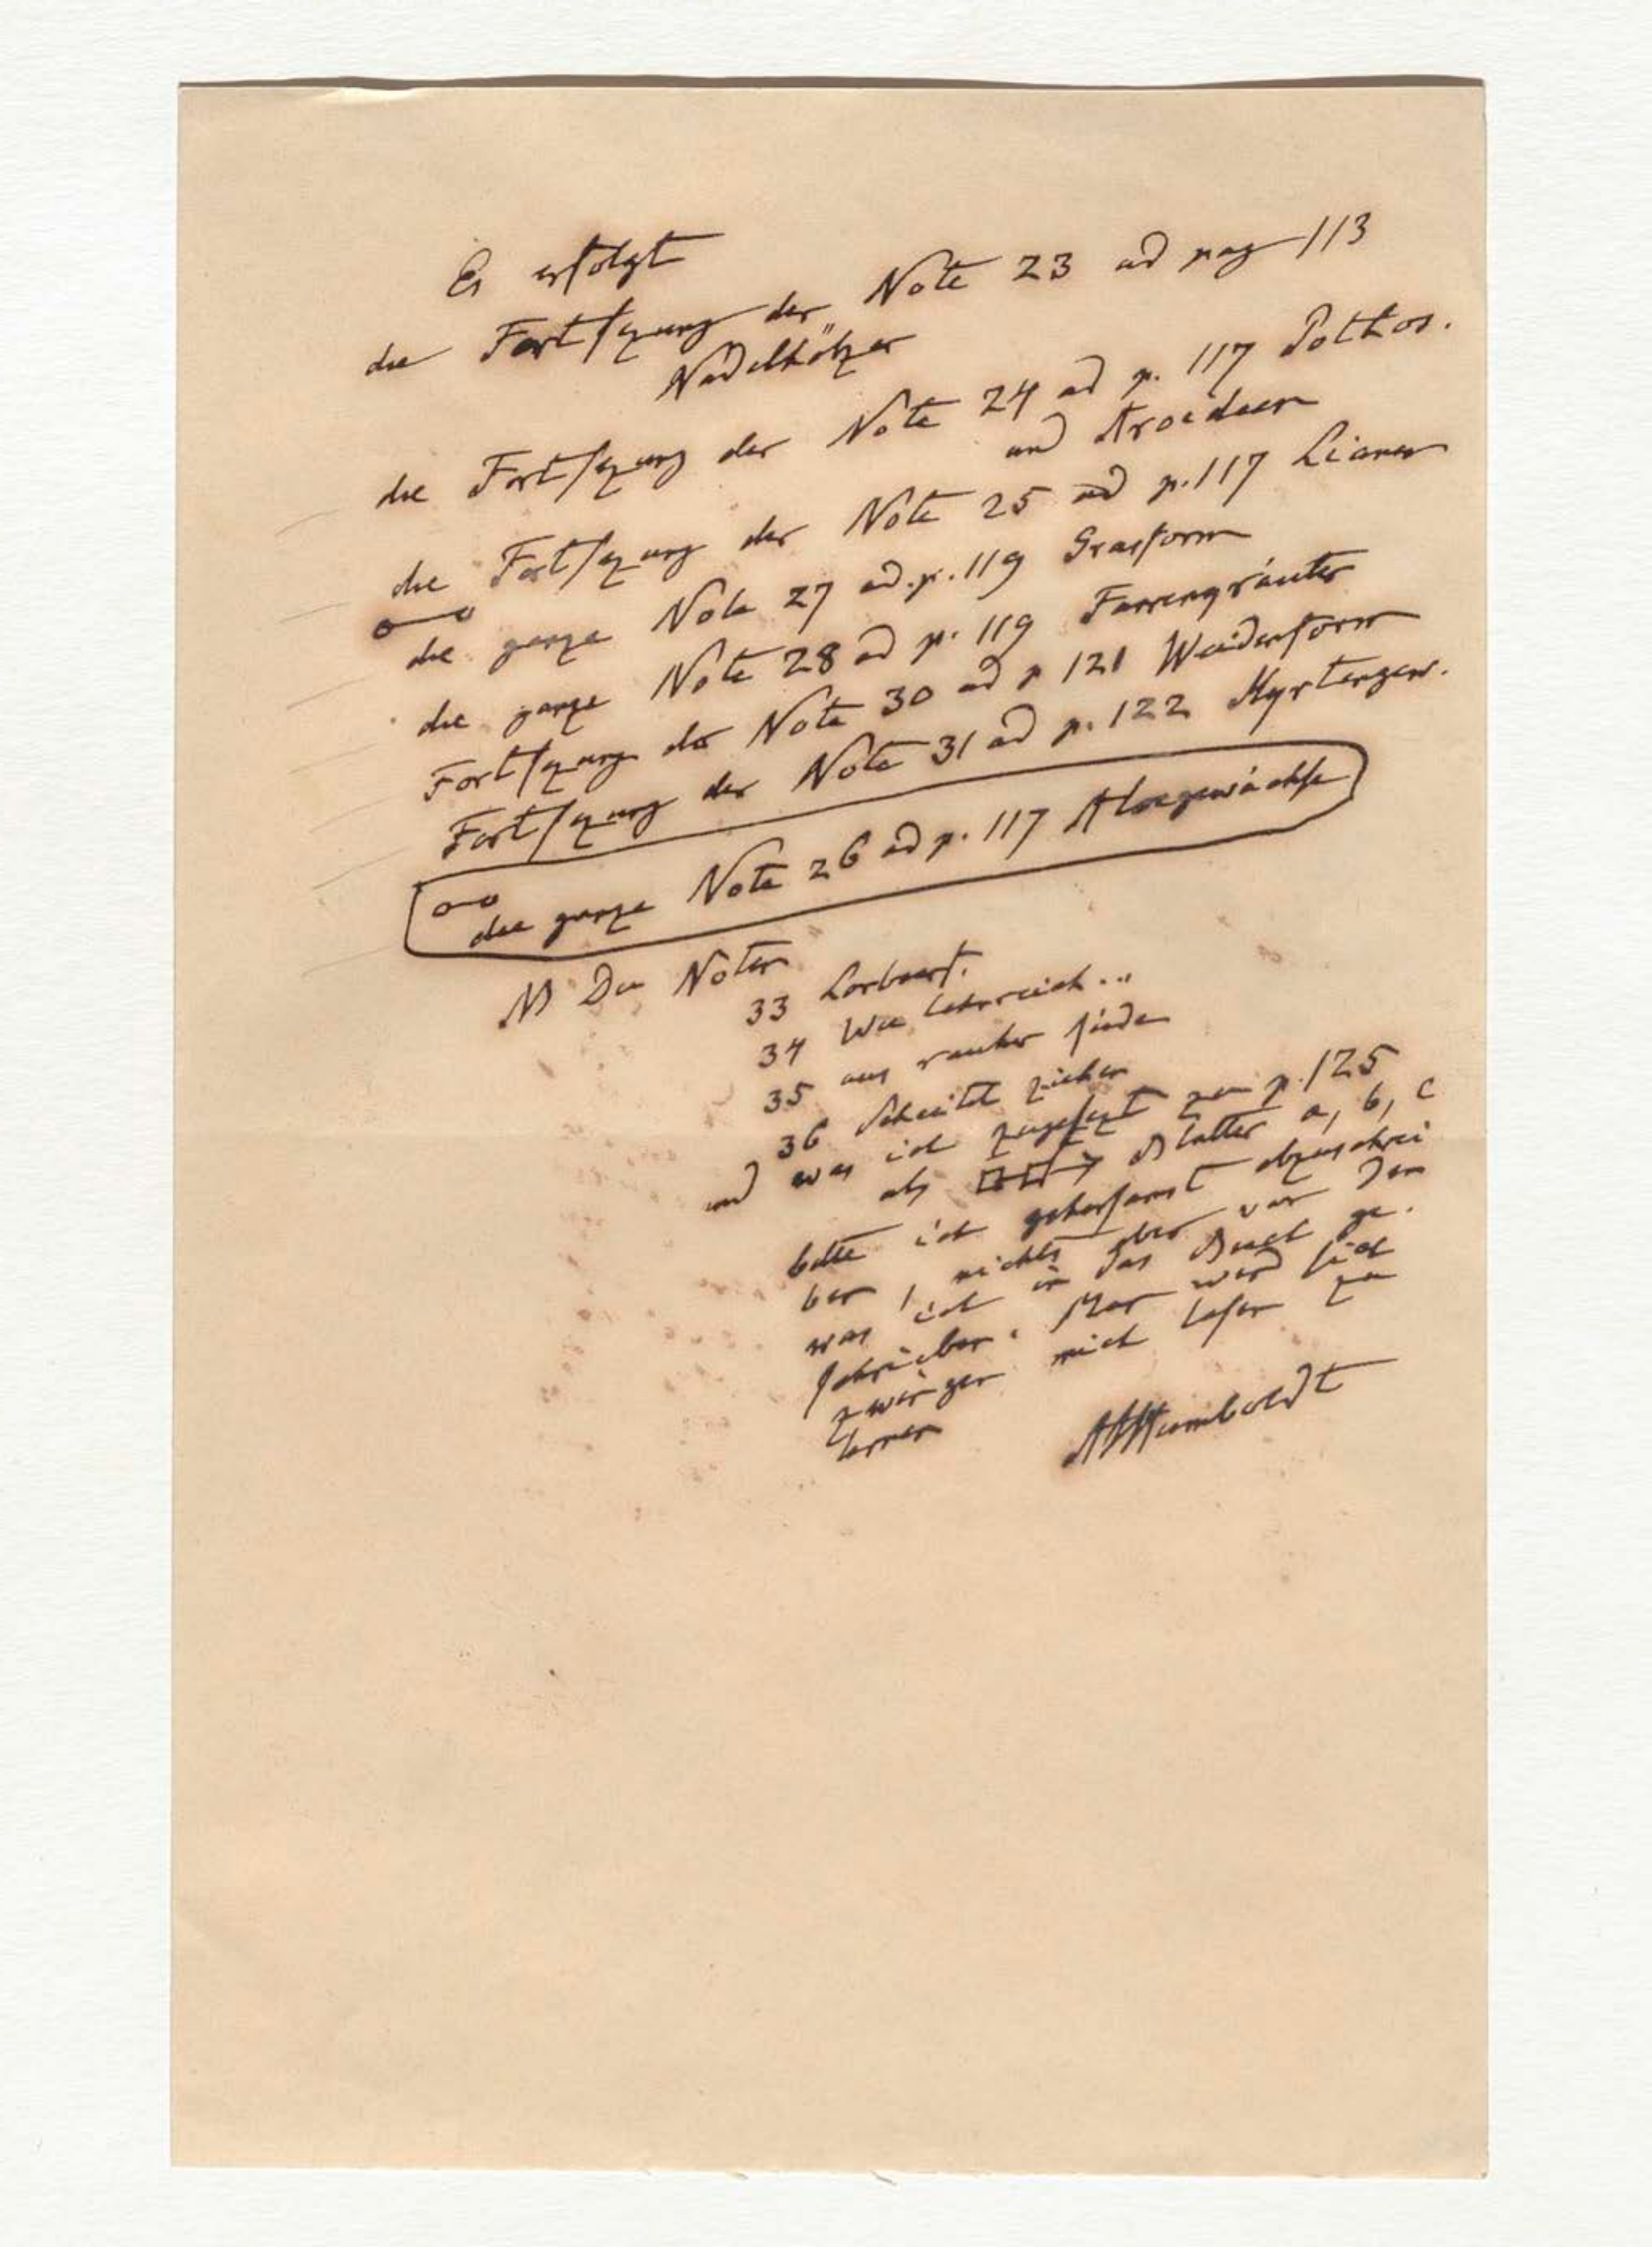 Es erfolgt
die Fortsezung der Note 23 ad pag 113
Nadelhölzer
die Fortsezung der Note 24 ad p. 117 Pothos.
und Aroideen
die Fortsezung der Note 25 ad p. 117 Lianen
die ganze Note 27 ad. p. 119 Grasform
die ganze Note 28 ad p. 119 Farrenkräuter
Fortsezung der Note 30 ad p 121 Weidenform
Fortsezung der Note 31 ad p. 122 Myrtengew.
die ganze Note 26 ad p. 117 Aloegewächse
NB Die Noten
33 Lorbeerf.
34 Wie lehrreich...
35 aus rauher Rinde
36 Scheitel ziehen
und was ich zugesezt zu p. 125
als Blätter a, b, c
bitte ich gehorsamst abzuschrei
ben, nichts aber von dem
was ich in das Buch ge.
schrieben. Man wird sich
zwingen mich lesen zu
lernen
AvHumboldt